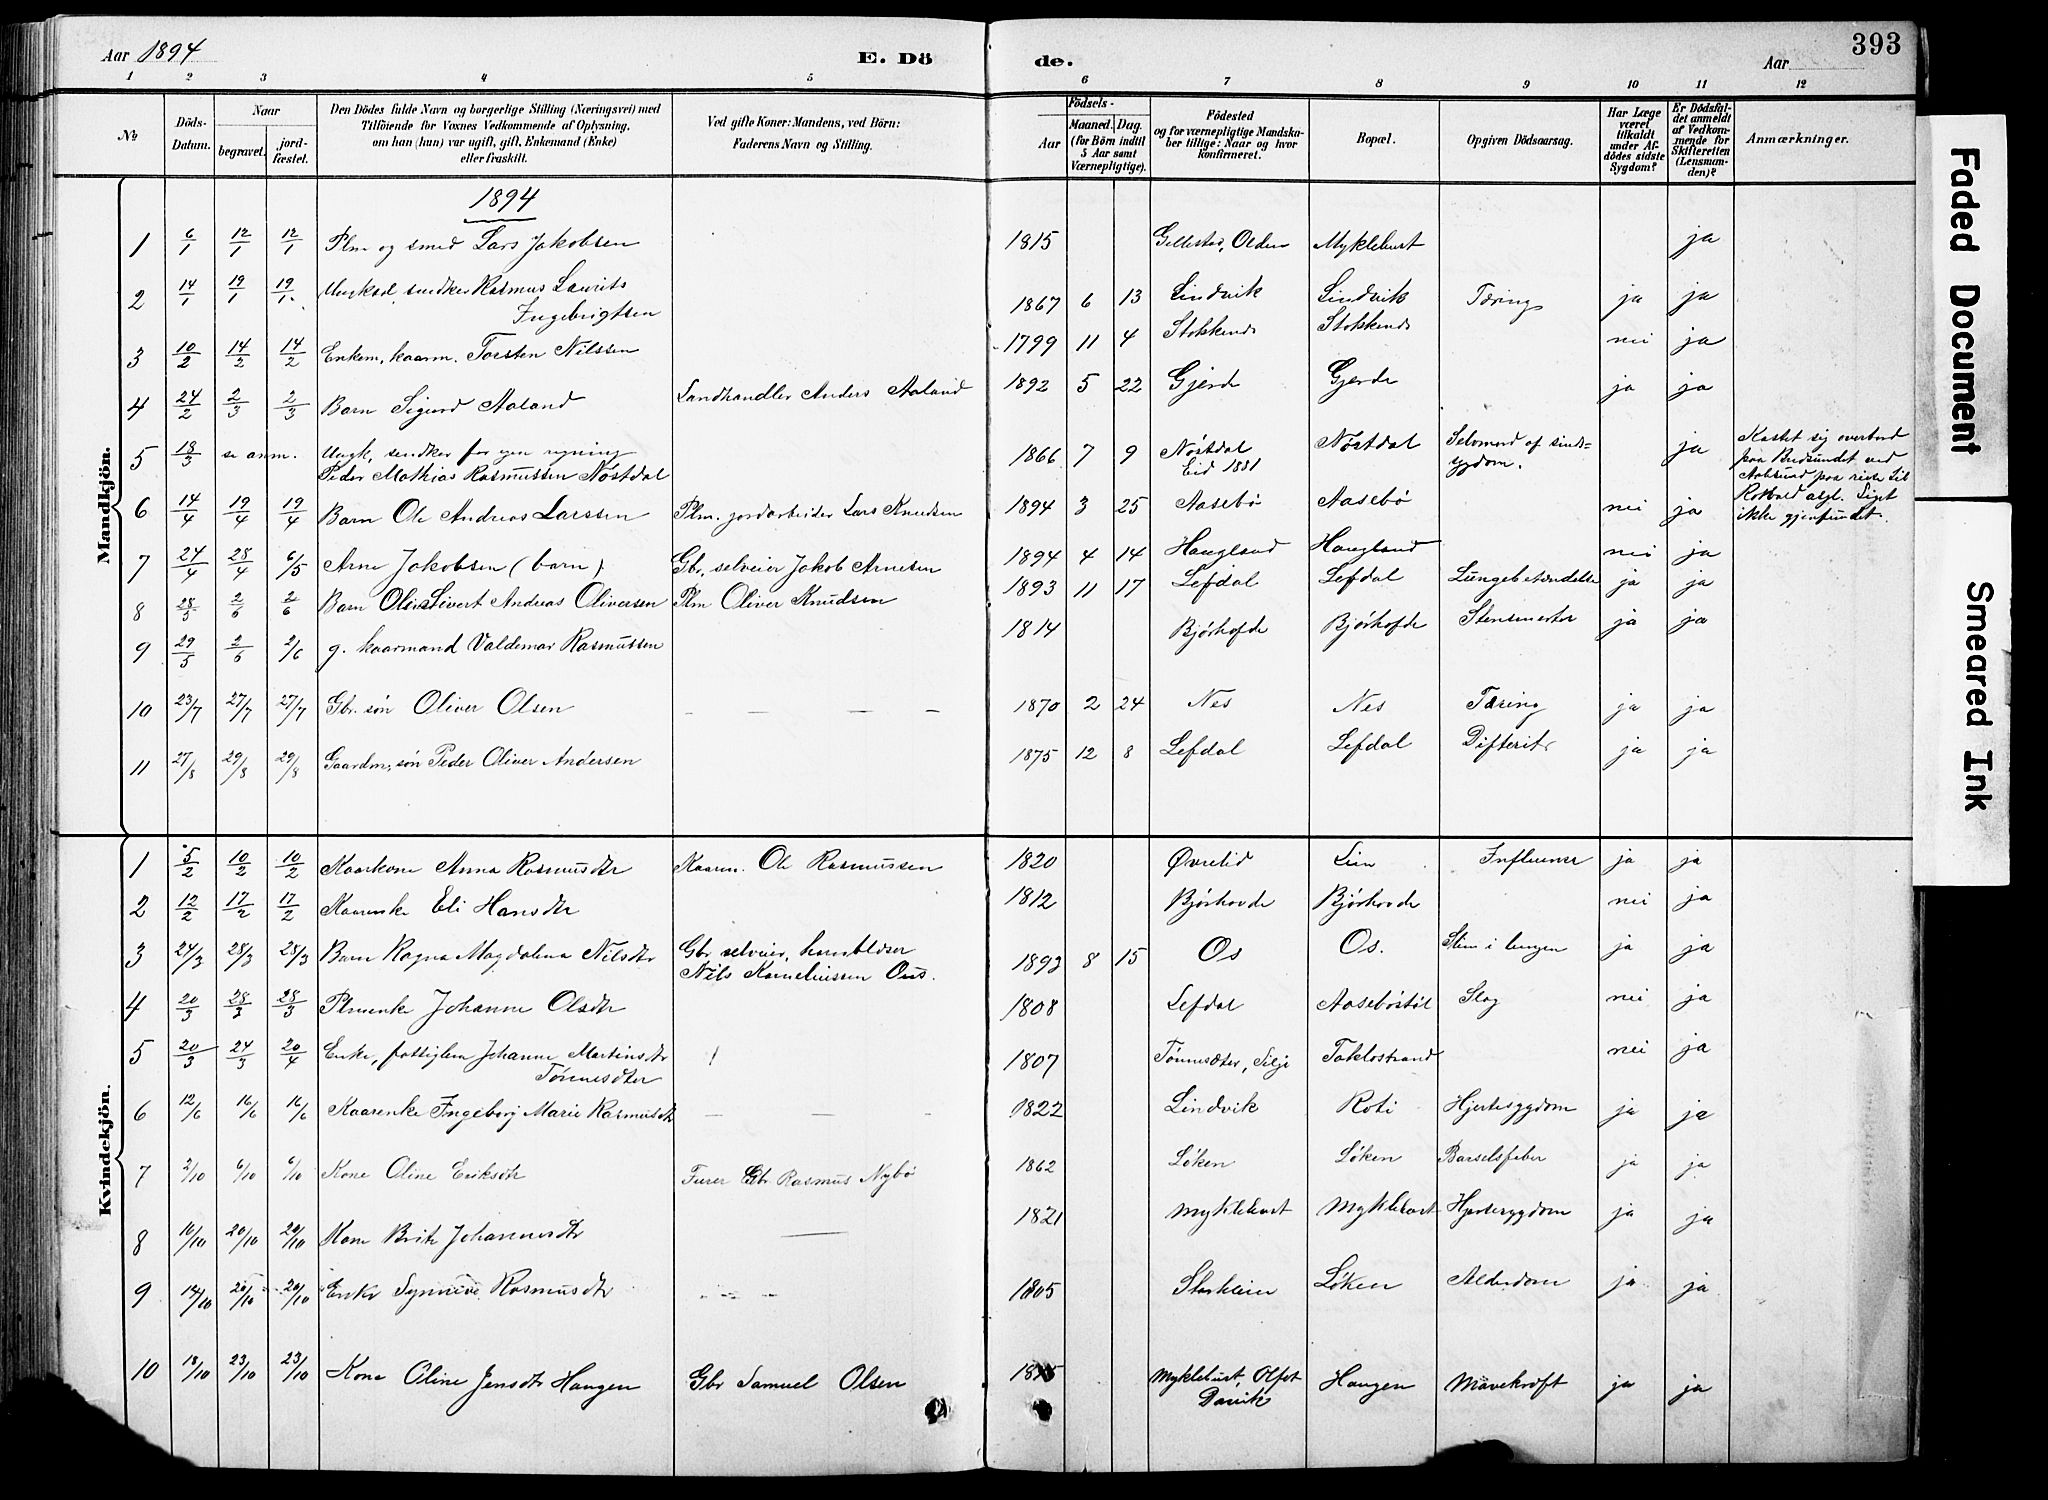 Aar 1894
E. Dö
de.
Aar
393
1 2 3 4 5 6 7 8 9 10 11 12
No
Döds-Datum.
Naar
begravet.
jord-fæstet.
Den Dödes fulde Navn og borgerlige Stilling (Næringsvei) med
Tilföiende for Voxnes Vedkommende af Oplysning,
om han (hun) var ugift, gift, Enkemand (Enke)
eller fraskilt.
Ved gifte Koner: Mandens, ved Börn:
Faderens Navn og Stilling.
Födsels-
Aar
Maaned. Dag.
(for Börn indtil
5 Aar samt
Værnepligtige).
Födested
og for værnepligtige Mandska-
ber tillige: Naar og hvor
konfirmeret.
Bopæl.
Opgiven Dödsaarsag.
Har Læge
været
tilkaldt
under Af-
dödes sidste
Sygdom?
Er Dödsfal-
det anmeldt
af Vedkom-
mende for
Skifteretten
(Lensman-
den)?
Anmærkninger.
Mandkjön.
1894
1 6/1 12/1 12/1 Plm og smed Lars Jakobsen 1815 Gellestad, Olden Myklebust ja
2 14/1 19/1 19/1 Ungkarl, snedker Rasmus Laurits
Ingebrigtsen 1867 6 13 Lindvik Lindvik Tæring ja ja
3 10/2 14/2 14/2 Enkem, kaarm. Torsten Nilssen 1799 11 4 Stokkenes Stokkenes nei ja
4 24/2 2/3 2/3 Barn Sigurd Aaland Landhandler Anders Aaland 1892 5 22 Gjerde Gjerde ja ja
5 18/3 se anm. Ungk, snedker for egen regning
Peder Mathias Rasmussen Nøstdal 1866 7 9 Nøstdal
Eid 1881 Nøstdal Selvmord af sinds-
sygdom. ja Kastet sig overbord
paa Budsundet ved
ikke gjenfundet.
6 14/4 19/4 19/4 Barn Ole Andreas Larssen Plm. jordarbeider Lars Knudsen 1894 3 25 Aasebø Aasebø nei ja
7 24/4 28/4 6/5 Arne Jakobsen (barn) Gbr, selveier Jakob Arnesen 1894 4 14 Haugland Haugland nei ja
8 28/5 2/6 2/6 Barn Olins Sivert Andreas Oliversen Plm Oliver Knudsen 1893 11 17 Lefdal Lefdal Lungebetændelse ja ja
9 29/5 2/6 2/6 g. kaarmand Valdemar Rasmussen 1814 Bjørhofde Bjørhofde Stensmerter ja ja
10 23/7 27/7 27/7 Gbr. søn Oliver Olsen – – – – 1870 2 24 Nes Nes Tæring ja ja
11 27/8 29/8 29/8 Gaardm, søn Peder Oliver Andersen 1875 12 8 Lefdal Lefdal Difterit ja ja
Kvindekjön.
1 5/2 10/2 10/2 Kaarkone Anna Rasmusdtr Kaarm. Ole Rasmussen 1820 Øvrelid Lien Influensa ja ja
2 12/2 17/2 17/2 Kaarenke Eli Hansdtr 1812 Bjørhovde Bjørhovde nei ja
3 24/3 28/3 28/3 Barn Ragna Magdalena Nilsdtr Gbr selveier, hornblæser
Nils Korneliussen Ous. 1893 8 15 Os Os. Slim i lungen ja ja
4 20/3 28/3 28/3 Plmenke Johanne Olsdtr 1808 Lefdal Aasebøstøl Slag nei ja
5 20/3 24/3 20/4 Enke, fattiglem Johanne Martinsdtr
Tønnesdter 1807 Tønnesæter, Silje Taklostrand nei ja
6 12/6 16/6 16/6 Kaarenke Ingeborg Marie Rasmusdtr – – – 1822 Lindvik Roti Hjertesygdom ja ja
7 2/10 6/10 6/10 Kone Oline Eriksdtr Furer Gbr Rasmus Nybø 1862 Løken Løken Barselsfeber ja ja
8 16/10 20/10 20/10 Kone Brite Johannesdtr — 1821 Myklebust Myklebust Hjertesygdom ja ja
9 14/10 20/10 20/10 Enke Synnøve Rasmusdtr – – – 1805 Starheim Løken Alderdom ja ja
10 18/10 23/10 23/10 Kone Oline Jensdtr Haugen Gbr Samuel Olsen Myklebust, Olfot
Davik Haugen Mavekræft ja ja
Faded Document
Smeared Ink